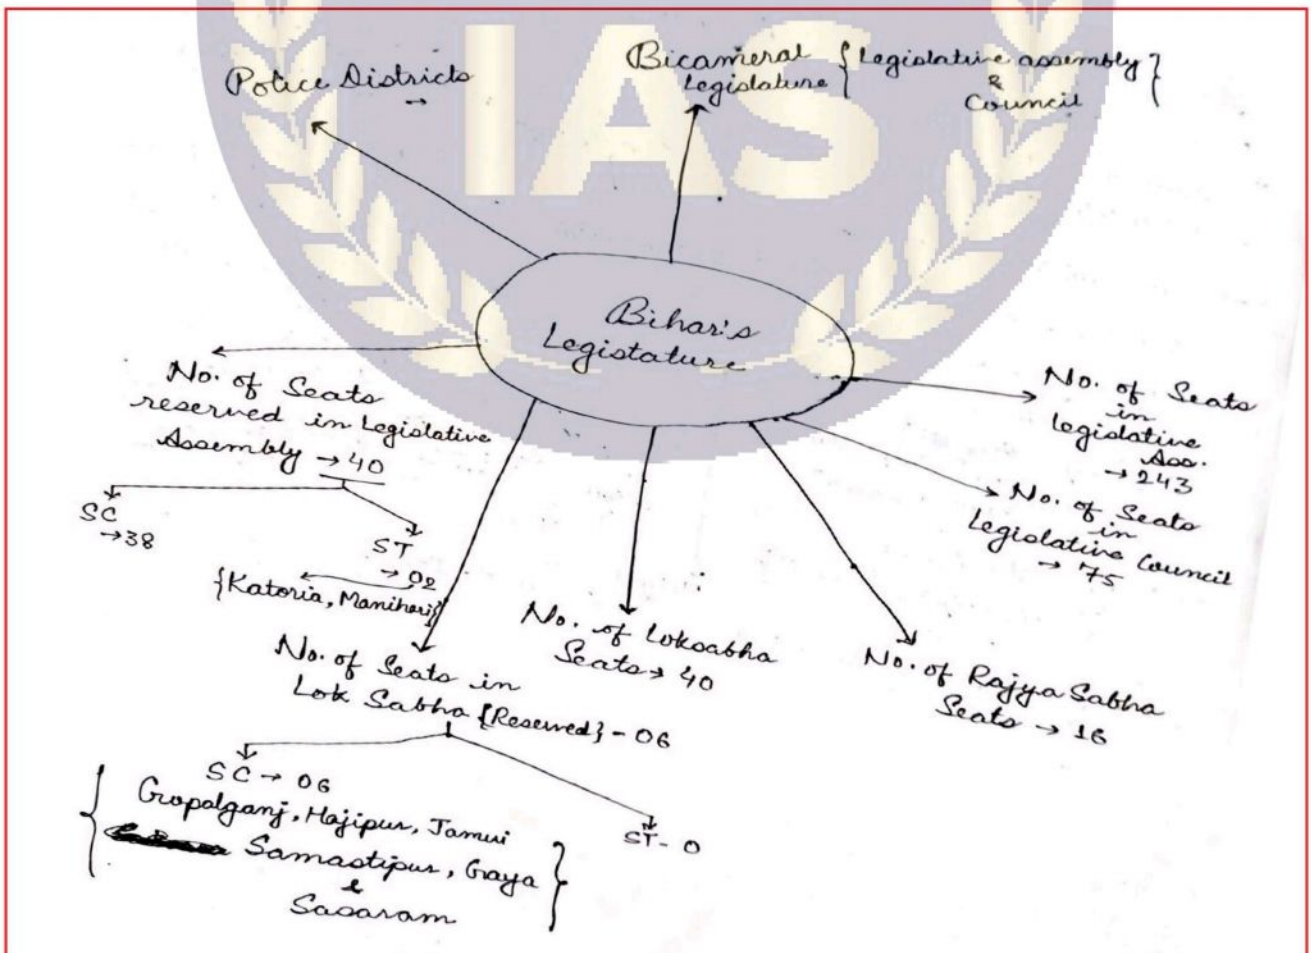 IAS
Police Districts
→
Bicameral
Legislature
{ Legislative assembly
&
Council }
Bihar's
Legistature
No. of Seats
reserved in Legislative
Assembly → 40
SC
→ 38
ST
→ 02
{Katoria, Manihari}
No. of Seats in
Lok Sabha {Reserved} - 06
SC → 06
{ Gopalganj, Hajipur, Jamui
Samastipur, Gaya
&
Sasaram }
ST - 0
No. of Loksabha
Seats → 40
No. of Rajya Sabha
Seats → 16
No. of Seats
in
legislative
Ass.
→ 243
No. of Seats
in
Legislative Council
→ 75